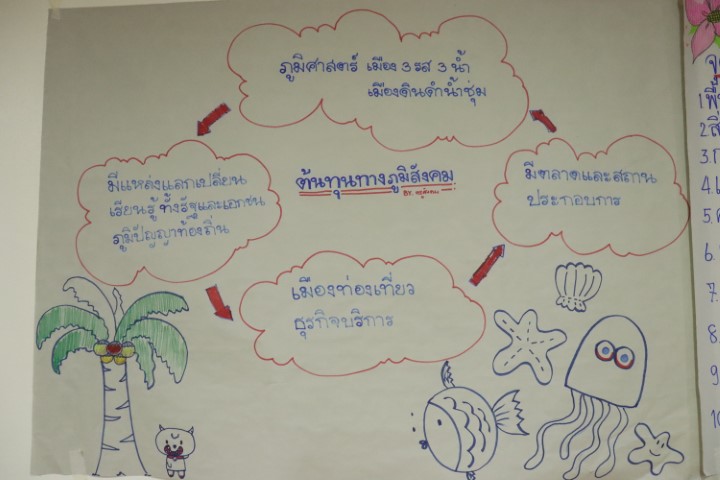 ภูมิศาสตร์ เมือง 3 รส 3 น้ำ
เมืองดินดำน้ำชุ่ม
ต้นทุนทางภูมิสังคม
BY.
มีแหล่งแลกเปลี่ยน
เรียนรู้ ทั้งรัฐและเอกชน
ภูมิปัญญาท้องถิ่น
มีตลาดและสถาน
ประกอบการ
เมืองท่องเที่ยว
ธุรกิจบริการ
1
2
3.
4.
5.
6.
7.
8.
9
10